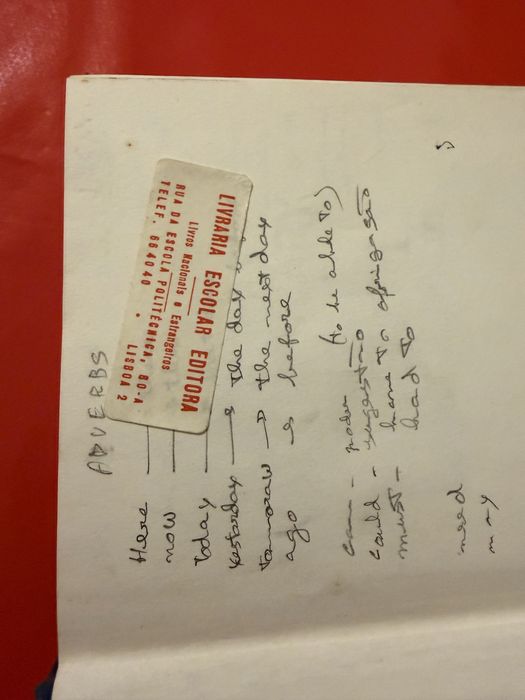 ADVERBS
Here
now
Today
yesterday → the day
Tomoraw → the next day
ago → before
LIVRARIA ESCOLAR EDITORA
Livros Nacionais e Estrangeiros
RUA DA ESCOLA POLITÉCNICA, 80-A
TELEF. 664040 • LISBOA 2
can - poder (to be able to)
could - sugestão
must - have to obrigasão
had to
need
may